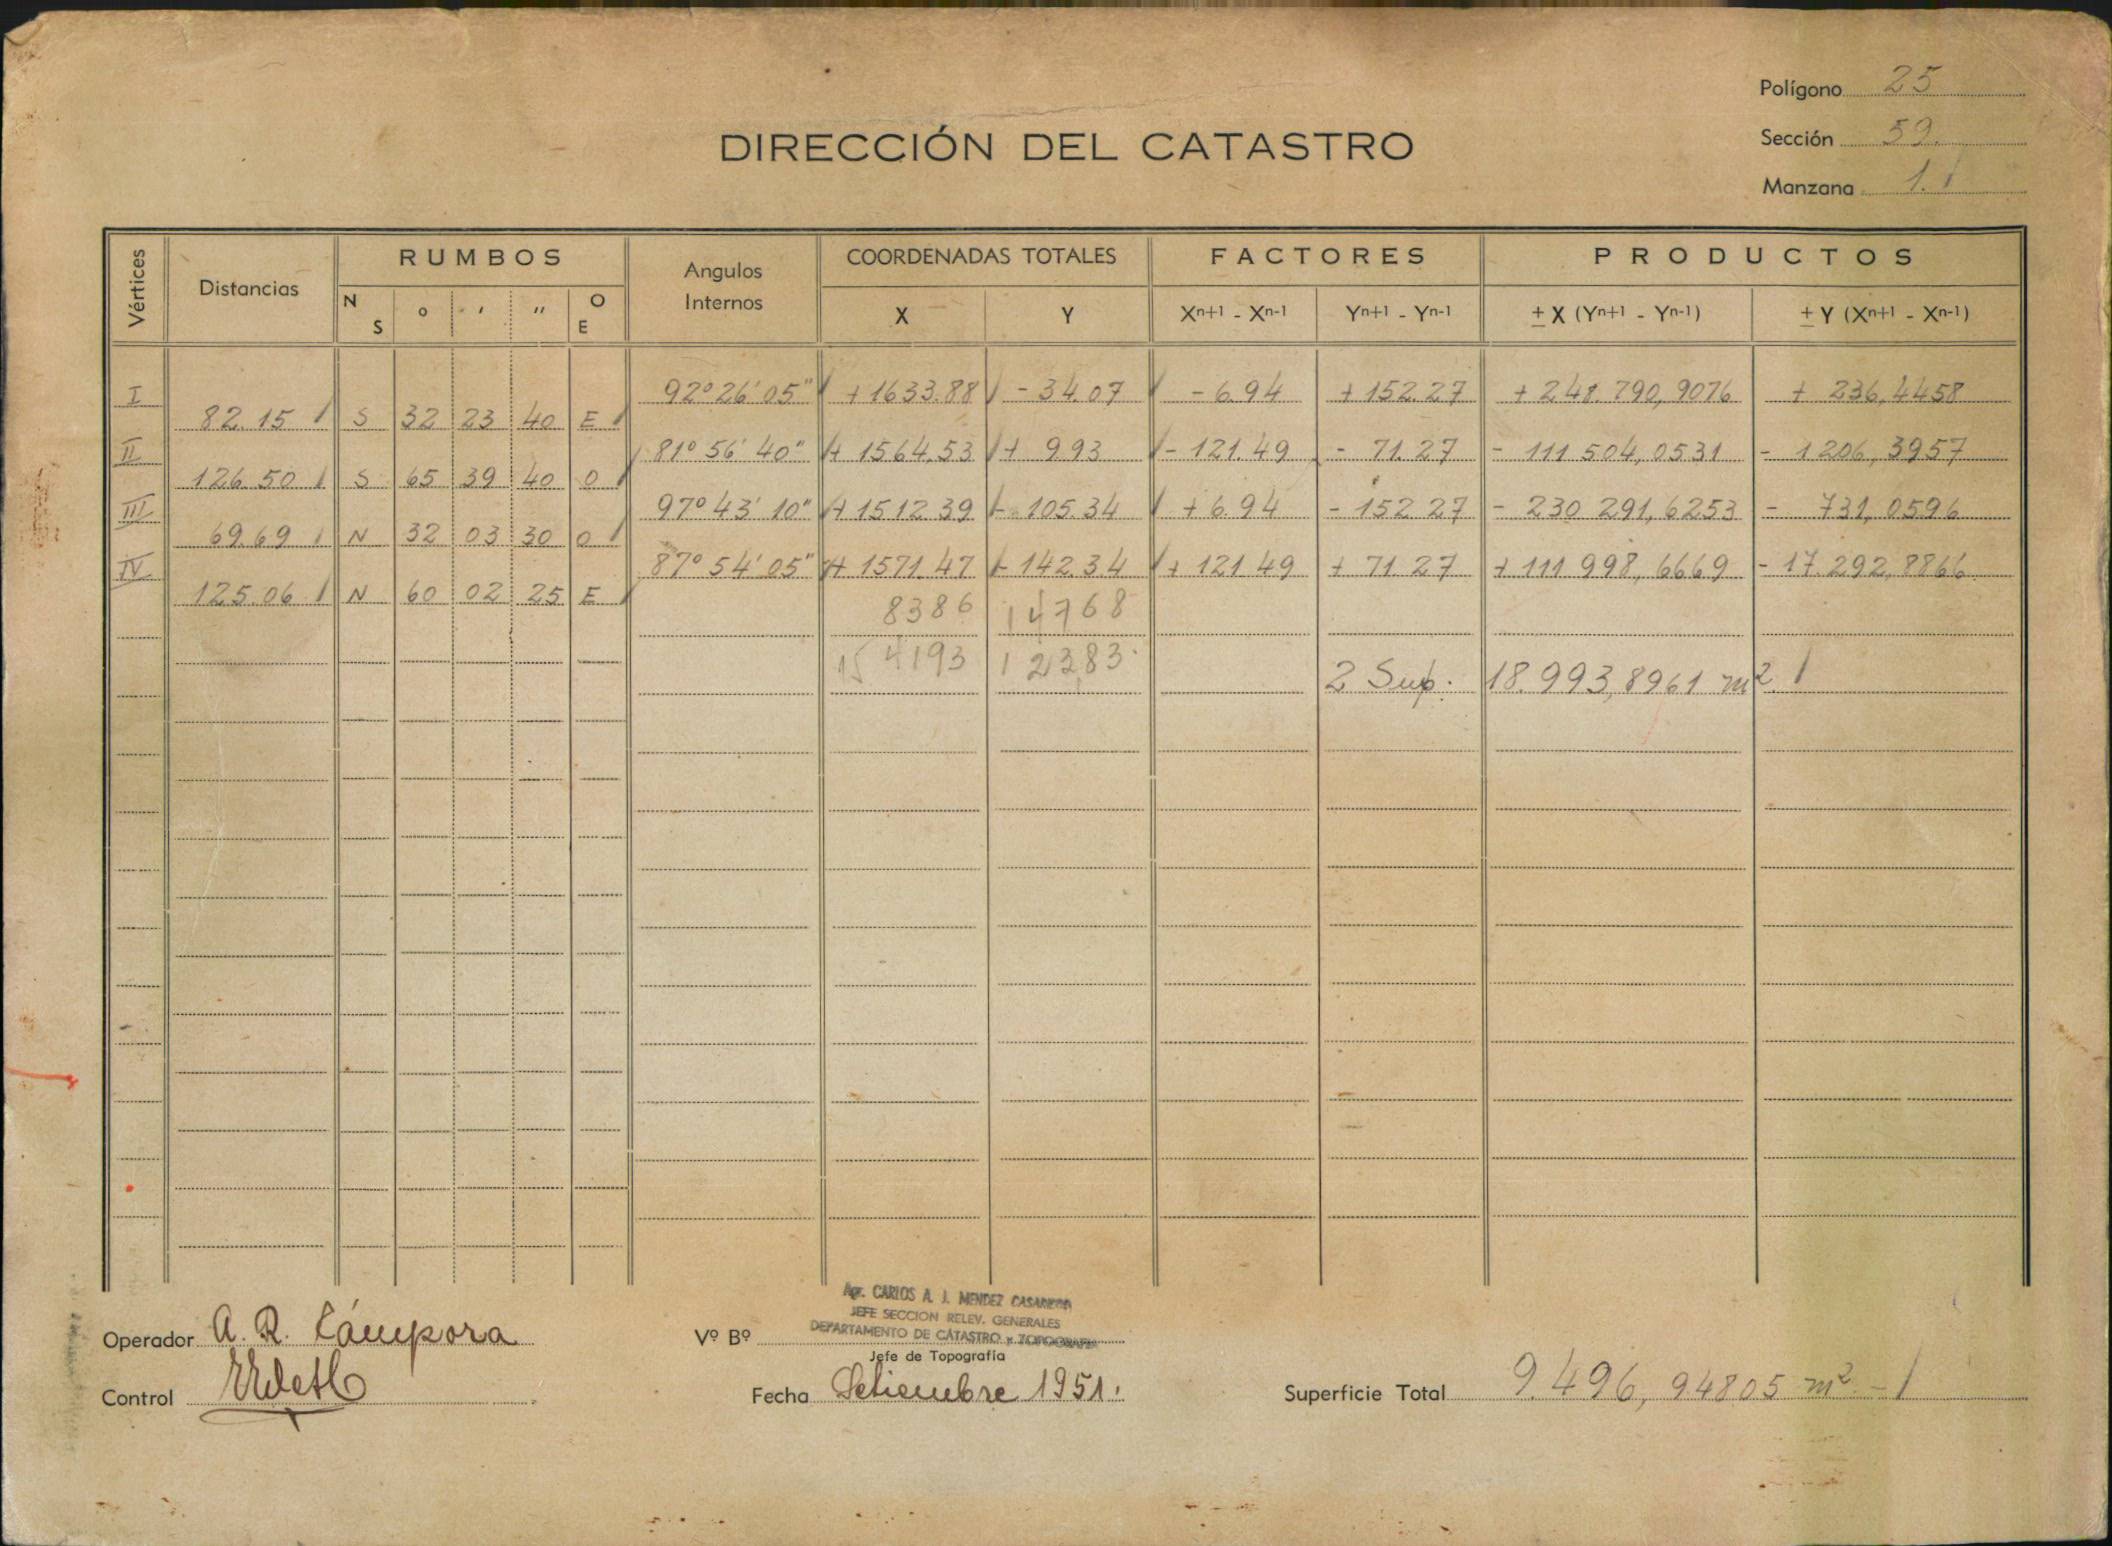 Polígono 25
DIRECCIÓN DEL CATASTRO
Sección 59.
Manzana 1.
Vértices
Distancias
RUMBOS
N S ° ' " O E
Angulos Internos
COORDENADAS TOTALES
X Y
FACTORES
Xn+1 - Xn-1 Yn+1 - Yn-1
PRODUCTOS
± X (Yn+1 - Yn-1) ± Y (Xn+1 - Xn-1)
I 92° 26' 05" + 1633.88 - 34.07 - 6.94 + 152.27 + 248.790,9076 + 236,4458
82.15 S 32 23 40 E
II 81° 56' 40" + 1564.53 + 9.93 - 121.49 - 71.27 - 111 504,0531 - 1 206,3957
126.50 S 65 39 40 O
III 97° 43' 10" + 1512.39 - 105.34 + 6.94 - 152 27 - 230 291,6253 - 731,0596
69.69 N 32 03 30 O
IV 87° 54' 05" + 1571.47 - 142.34 + 121 49 + 71.27 + 111 998,6669 - 17.292,8866
125.06 N 60 02 25 E
8386 14768
15 4193 12383
2 Sup. 18.993,8961 m2.
Operador A. R. Cámpora
Control
Vº Bº
Agr. CARLOS A. J. MENDEZ CASARIEGO
JEFE SECCION RELEV. GENERALES
DEPARTAMENTO DE CATASTRO y TOPOGRAFIA
Jefe de Topografía
Fecha Setiembre 1951.
Superficie Total 9.496,94805 m2 -